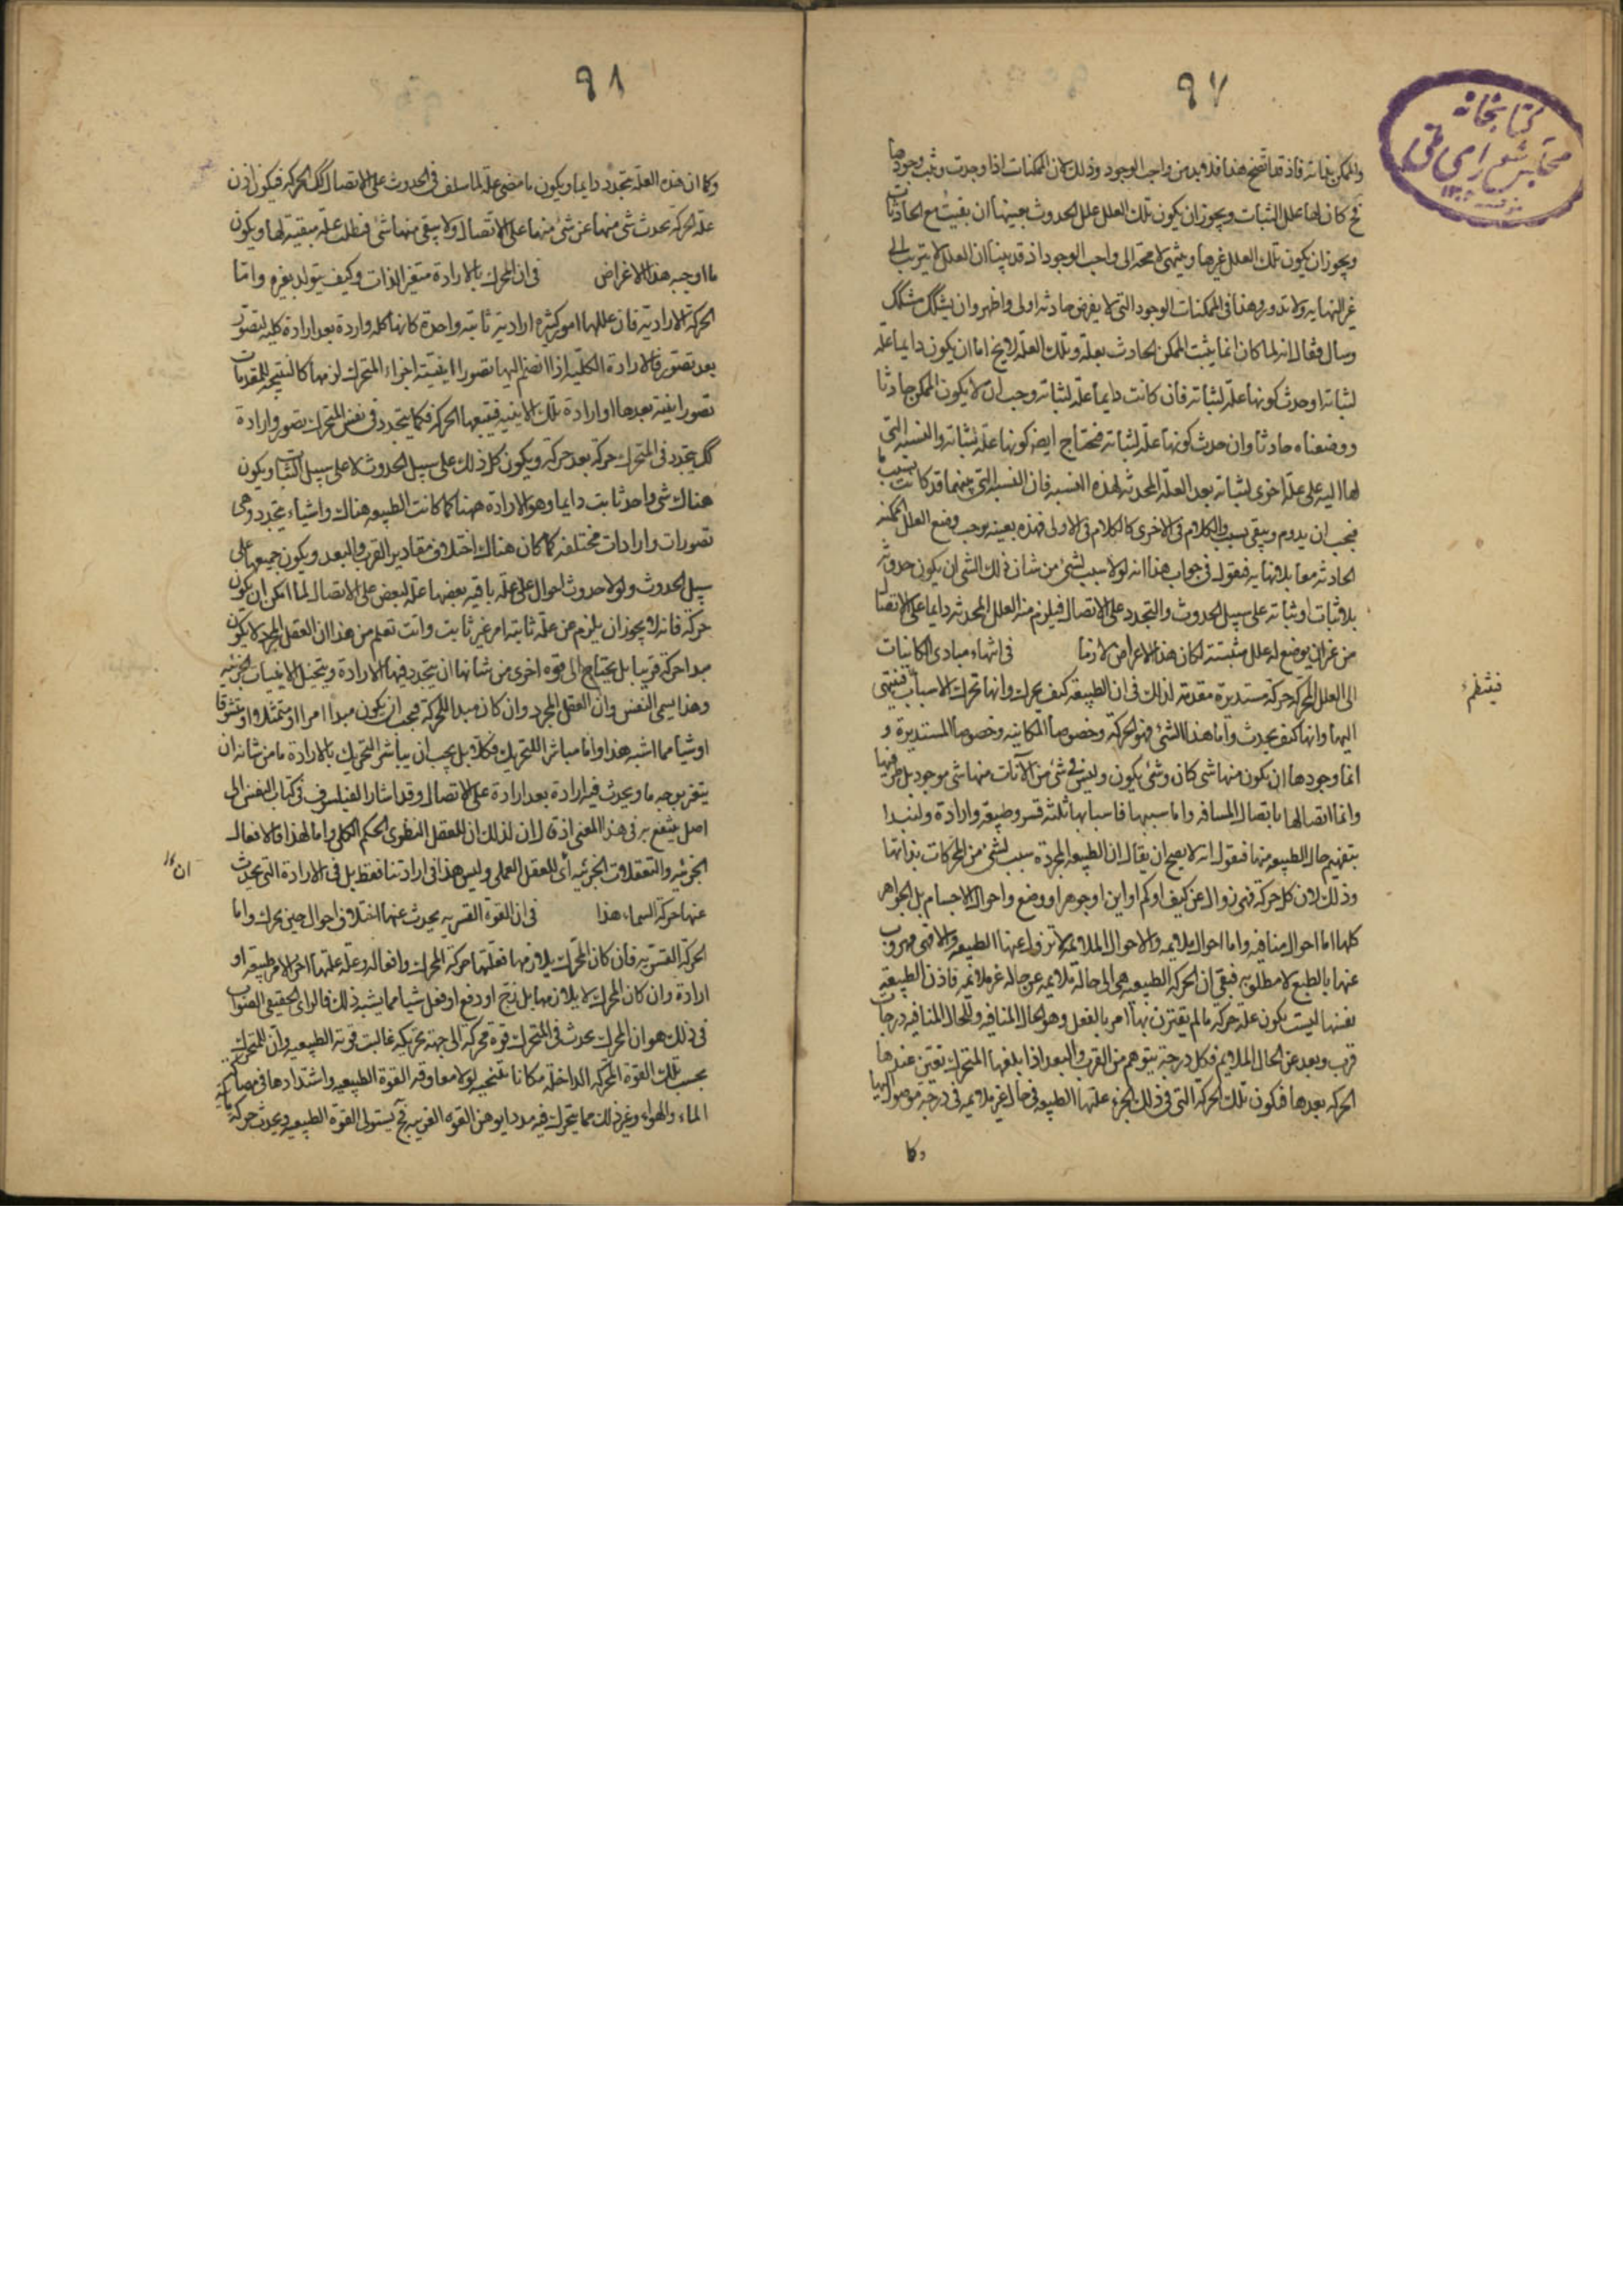 ٩٧
كتابخانه
مجلس شوراى ملى
والممكن بذاته فاذ قد اتضح هذا فلا بد من واجب الوجود وذلك لان الممكنات اذا وجدت وثبت وجودها
كان لها علل الثبات ويجوز ان يكون تلك العلل علل الحدوث بعينها ان بقيت مع الحادثات
ويجوز ان يكون تلك العلل غيرها وينتهى لا محة الى واجب الوجود اذ قد بينا ان العلل لا يترتب الى
غير النهايه ولا تدور وهذا فى الممكنات الوجود التى لا يفرض حادثه اولى واظهر وان يشكك متشكك
وسال فقال انه لما كان انما يثبت الممكن الحادث بعلة وتلك العلة لا يخ اما ان يكون دايما علة
لثباته او حدث كونها علة لثباته فان كانت دايما علة لثباته وجب ان لا يكون الممكن حادثا
ووضعناه حادثا وان حدث كونها علة لثباته فتحتاج ايضه كونها علة لثباته والنسبة التى
لها اليه على علة اخرى لثباته بعد العلة المحدثه لهذه النسبه فان النسبة التى بينهما قد كانت بسبب
فيجب ان يدوم ويبقى بسبب والكلام فى الاخرى كالكلام فى الاولى فهذه بعينه يوجب وضع العلل الممكنه
الحادثه معا بلا نهايه فنقول فى جواب هذا انه لولا سبب لشئ من شان ذلك الشئ ان يكون حدوثه
بلا ثبات او ثباته على سبيل الحدوث والتجدد على الاتصال فيلزم منه العلل المحدثه دايما على الاتصال
من غير ان يوضع له علل مثبتته لكان هذا الاعراض لازما فى انتهاء مبادى الكائنات
الى العلل المحركة حركة مستديرة مقدمة لذلك فى ان الطبيعة كيف يحرك وانها تحرك لاسباب فتنتهى
فينظم
اليها وانها كيف يحدث واما هذا الشئ فهو الحركة وخصوصا المكانيه وخصوصا المستديرة و
انما وجودها ان يكون منها شى كان وشئ يكون وليس فى شئ من الآنات منها شى موجود بل طرفيها
وانما اتصالها باتصال المسافه واما سببها فاسبابها ثلثة قسر وطبيعة وارادة ولنبدا
بتفهيم حال الطبيعه منها فنقول انه لا يصح ان يقال ان الطبيعه المجردة سبب لشئ من الحركات بذاتها
وذلك لان كل حركة فهى زوال عن كيف او كم او اين او جوهر او وضع واحوال الاجسام بل الجواهر
كلها اما احوال منافيه واما احوال ملايمه والاحوال الملايمه لا تزول عنها الطبيعه والا فهى مهروب
عنها بالطبع لا مطلوبه فبقى ان الحركه الطبيعه هى الى حالة ملايمه عن حالة غير ملايمه فاذن الطبيعة
نفسها ليست يكون علة حركة ما لم يقترن بها امر بالفعل وهو الحال المنافيه وللحال المنافيه درجات
قرب وبعد عن الحال الملايم فكل درجة يتوهم من القرب والبعد اذا بلغها المتحرك تعين عندها
الحركه بعدها فيكون تلك الحركة التى فى ذلك الجزء علتها الطبيعه فى حال غير ملايمه فى درجة موصول اليها
وكا
٩٨
وكما ان هذه العلة يتجدد دايما ويكون ما مضى علة لما سلف فى الحدوث على الاتصال كك الحركه فيكون اذن
علة الحركة يحدث شئ منها عن شئ منها على الاتصال ولا يبقى منها شئ فنطلب علة مبقية لها ويكون
ما اوجبه هذا الاعراض فى ان المحرك بالارادة متغير الذات وكيف يتولد بغيره واما
الحركة الاراديه فان عللها امور كثيره ارادية ثابتة واحدة كانها كله واردة بعد ارادة كليه لتصور
بعد تصور فالارادة الكلية اذا انضم اليها تصور الاينية اجزاء المتحرك لزمها كالنتيجة للمقدمات
تصور اينية بعدها او ارادة تلك الاينيه فيتبعها الحركه فكما يتجدد فى نفس المتحرك تصور وارادة
كك يتجدد فى المتحرك حركة بعد حركة ويكون كل ذلك على سبيل الحدوث لا على سبيل الثبات ويكون
هناك شئ واحد ثابت دايما وهو الارادة ههنا كما كانت الطبيعه هناك واشياء يتجدد وهى
تصورات وارادات مختلفه كما كان هناك اختلاف مقادير القرب والبعد ويكون جميعها على
سبيل الحدوث ولولا حدوث احوال على علة باقيه بعضها علة لبعض على الاتصال لما امكن ان يكون
حركة فانه لا يجوز ان يلزم عن علة ثابتة امر غير ثابت وانت تعلم من هذا ان العقل المجرد لا يكون
مبدا حركة قريبا بل يحتاج الى قوه اخرى من شانها ان يتجدد فيها الارادة ويتخيل الاينيات الجزئيه
وهذا يسمى النفس وان العقل المجرد وان كان مبدا للحركة فيجب ان يكون مبدا امرا او متمثلا او متشوقا
او شيا مما اشبه هذا واما مباشر التحريك فكلا بل يجب ان يباشر التحريك بالارادة ما من شانه ان
يتغير بوجه ما ويحدث فيه ارادة بعد ارادة على الاتصال وقد اشار الفيلسوف فى كتاب النفس الى
اصل ينتفع به فى هذا المعنى اذ قال ان لذلك ان للعقل النظرى الحكم الكلى واما لهذا فالافعال
الجزئيه والتعقلات الجزئيه اى للعقل العملى وليس هذا فى ارادتنا فقط بل فى الارادة التى يحدث
عنها حركة السماء هذا فى ان القوة القسريه يحدث عنها اختلاف احوال حين يحرك واما
الحركة القسريه فان كان المحرك يلازمها فعلتها حركة المحرك وافعاله وعلة علتها اخر الامر طبيعة او
ارادة وان كان المحرك لا يلازمها بل زج او دفع او فعل شيا مما يشبه ذلك فالراى الحقيقى الصواب
فى ذلك هو ان المحرك يحدث فى المتحرك قوة محركة الى جهة تحريكه غالبة قوته الطبيعيه وان للمتحرك
بحسب تلك القوة المحركه الداخلة مكانا ينتحيه لولا معاوقه القوة الطبيعيه واشتدادها فى مصاكة
الماء والهواء وغير ذلك مما يتحرك فيه مددا يوهن القوه القريبه فح يستولى القوة الطبيعيه ويحدث حركة